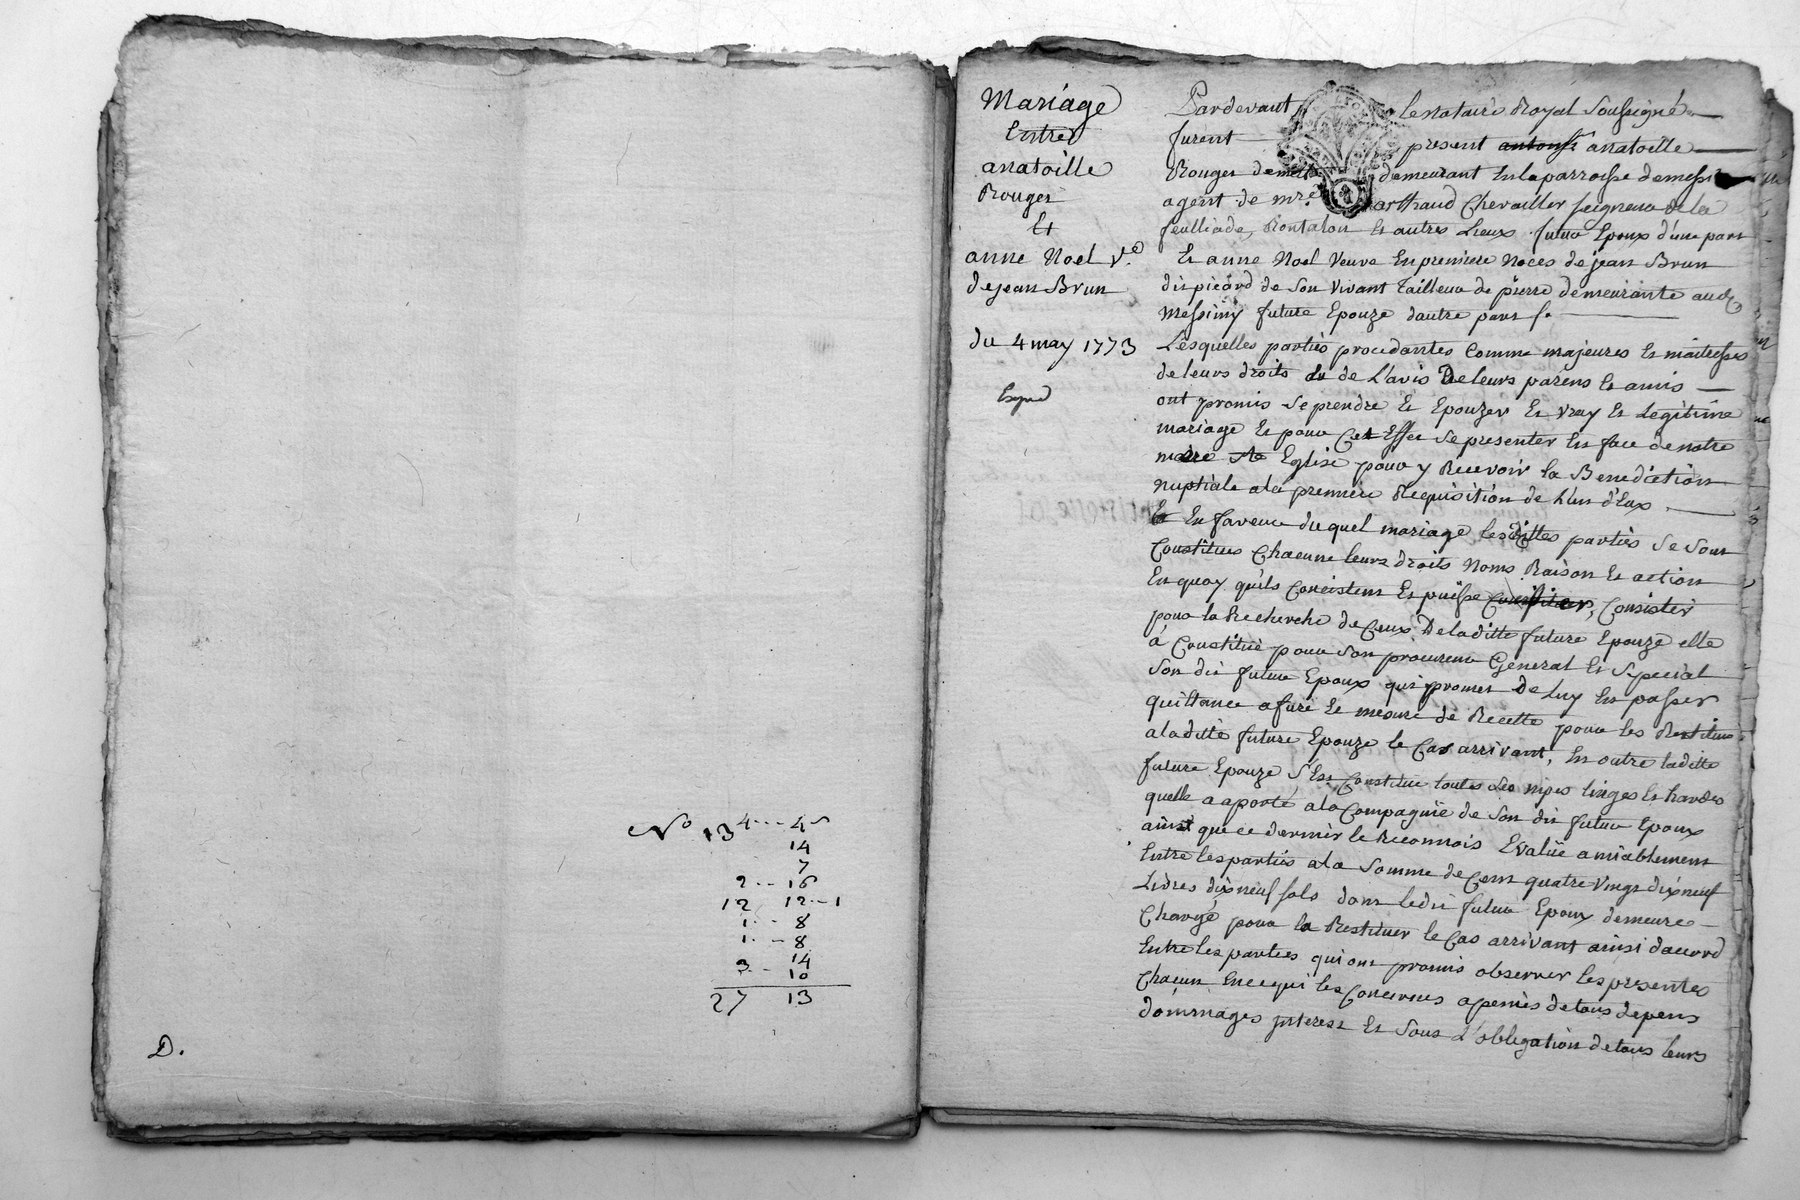 No 13 4 -- 4
14
7
2 -- 16
12 12 -- 1
1 -- 8
1 -- 8
14
3 -- 10
27 13
D.
Mariage
Entre
anatoille
Rouger
Et
anne Noel Ve
de jean Brun
du 4 may 1773
Exped
Pardevant le notaire Royal Soussigné
furent present anatoille
Rouger demeurant En la parroisse de messi
agent de mre arthaud Chevailler seigneur de la
feulliade, Rontalon Et autres Lieux futur Epoux d'une part
Et anne Noel Veuve En premiere noces de jean Brun
dit picard de Son Vivant Tailleur de pierre demeurante aud
Messimy future Epouze dautre part
Lesquelles parties procedantes Comme majeures Et maitresses
de leurs droits de L'avis De leurs parens Et amis
ont promis se prendre Et Epouzer En vray Et Legitime
mariage Et pour Cet Effet Se presenter En face de notre
mere Ste Eglise pour y Recevoir la Benediction
nuptiale a la premiere Requisition de L'un d'Eux
En faveur du quel mariage lesdittes parties Se Sont
Constitues Chacune leurs droits Noms Raison Et action
En quoy quils Concistent Et puisse Consister, Consister
pour la Recherche de Ceux De laditte future Epouze elle
à Constitué pour Son procureur General Et Special
Son dit futur Epoux qui promet De Luy En passer
quittance a fure Et mesure de Recette pour les Restituer
a laditte future Epouze le Cas arrivant, En outre laditte
future Epouze S'Est Constitue toutes Ses nipes linges Et hardes
quelle a aporté a la Compagnie de Son dit futur Epoux
ainsi que ce dernier le Reconnois Evalué amiablement
Entre les parties a la Somme de Cent quatre vingt dix neuf
Livres dix neuf sols dont ledit futur Epoux demeure
Chargé pour la Restituer le Cas arrivant ainsi dacord
Entre les parties qui ont promis observer les presentes
Chacun En ce qui les Concernes a peines de tous depens
dommages interest Et Sous L'obligation de tous leurs